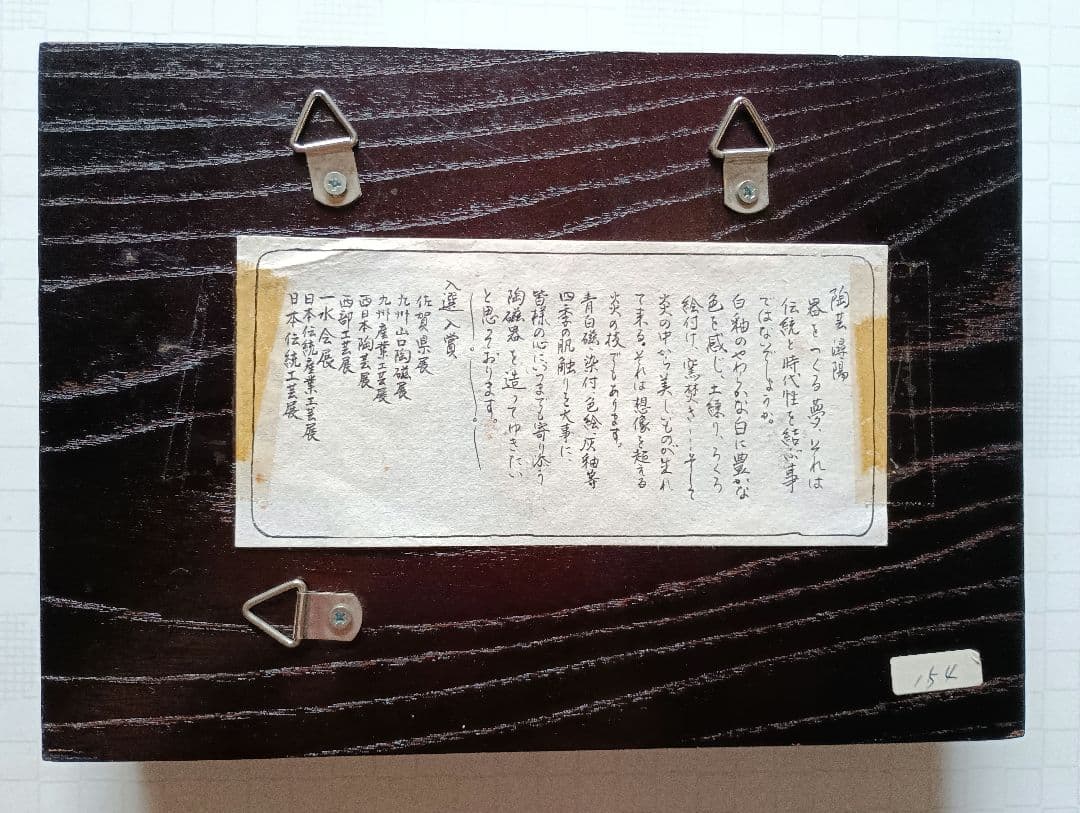 陶芸 潯陽
器をつくる夢、それは
伝統と時代性を結ぶ事
ではないでしょうか。
白釉のやわらかな白に豊かな
色を感じ、土練り、ろくろ
絵付け、窯焚き……そして
炎の中から美しいものが生れ
て来る。それは想像を超える
炎の技でもあります。
青白磁、染付、色絵、灰釉等
四季の肌触りを大事に、
皆様の心にいつまでも寄り添う
陶磁器を造ってゆきたい
と思っております。
入選入賞
佐賀県展
九州山口陶磁展
九州産業工芸展
西日本陶芸展
西部工芸展
一水会展
日本伝統産業工芸展
日本伝統工芸展
154